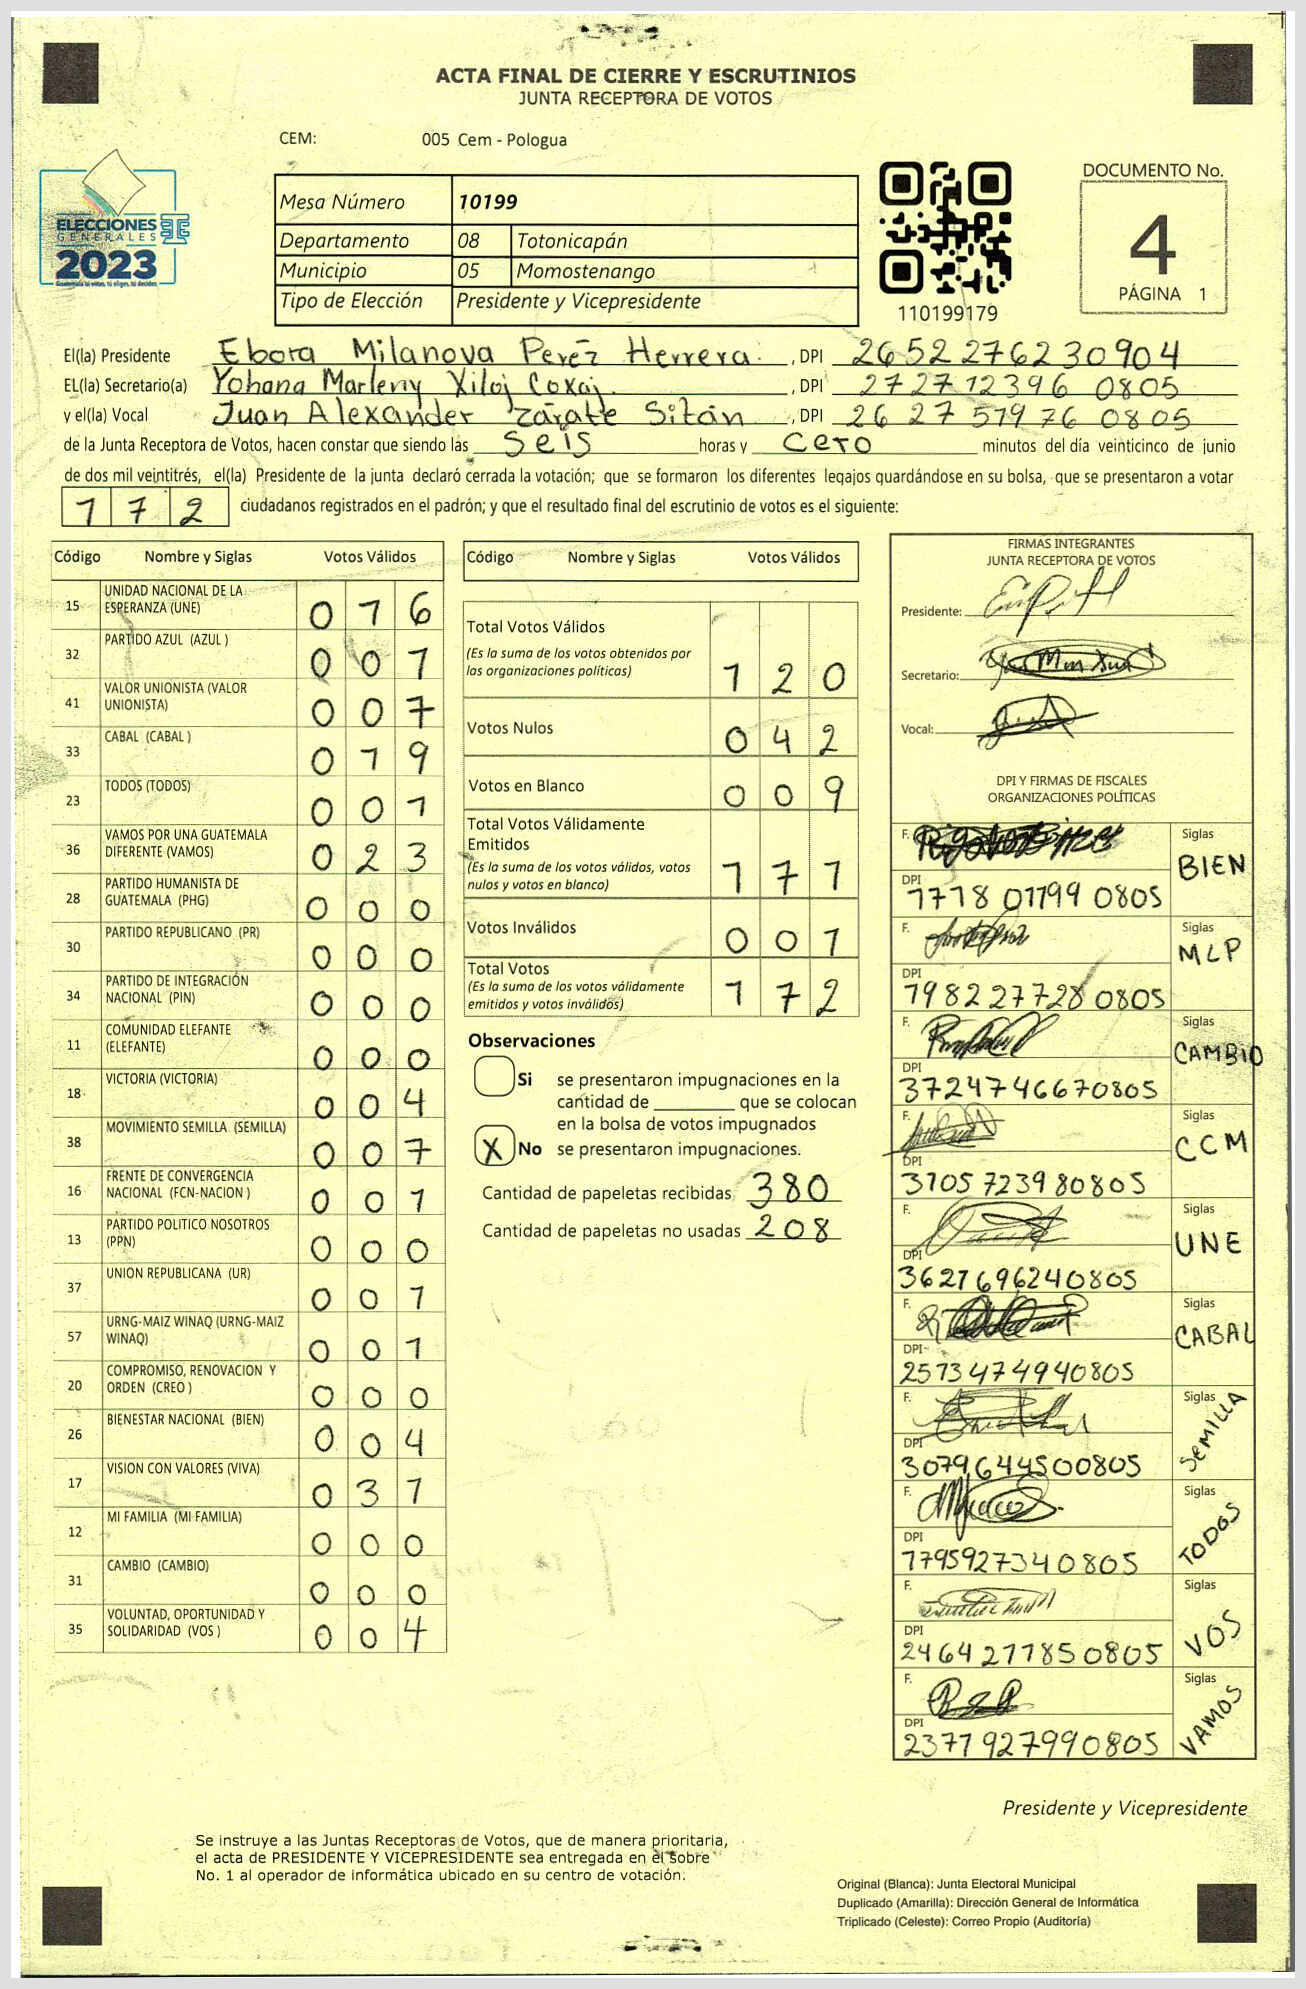 ACTA FINAL DE CIERRE Y ESCRUTINIOS
JUNTA RECEPTORA DE VOTOS
CEM: 005 Cem - Pologua
ELECCIONES
GENERALES
2023
Guatemala tú votas, tú eliges, tú decides
Mesa Número 10199
Departamento 08 Totonicapán
Municipio 05 Momostenango
Tipo de Elección Presidente y Vicepresidente
110199179
DOCUMENTO No.
4
PÁGINA 1
El(la) Presidente Ebora Milanova Peréz Herrera. , DPI 2652276230904
EL(la) Secretario(a) Yohana Marleny Xiloj Coxaj , DPI 2727 12396 0805
y el(la) Vocal Juan Alexander Zárate Sitán , DPI 2627 51976 0805
de la Junta Receptora de Votos, hacen constar que siendo las seis horas y cero minutos del día veinticinco de junio
de dos mil veintitrés, el(la) Presidente de la junta declaró cerrada la votación; que se formaron los diferentes legajos guardándose en su bolsa, que se presentaron a votar
172 ciudadanos registrados en el padrón; y que el resultado final del escrutinio de votos es el siguiente:
Código Nombre y Siglas Votos Válidos
15 UNIDAD NACIONAL DE LA ESPERANZA (UNE) 016
32 PARTIDO AZUL (AZUL ) 001
41 VALOR UNIONISTA (VALOR UNIONISTA) 007
33 CABAL (CABAL ) 019
23 TODOS (TODOS) 001
36 VAMOS POR UNA GUATEMALA DIFERENTE (VAMOS) 023
28 PARTIDO HUMANISTA DE GUATEMALA (PHG) 000
30 PARTIDO REPUBLICANO (PR) 000
34 PARTIDO DE INTEGRACIÓN NACIONAL (PIN) 000
11 COMUNIDAD ELEFANTE (ELEFANTE) 000
18 VICTORIA (VICTORIA) 004
38 MOVIMIENTO SEMILLA (SEMILLA) 007
16 FRENTE DE CONVERGENCIA NACIONAL (FCN-NACION ) 001
13 PARTIDO POLITICO NOSOTROS (PPN) 000
37 UNION REPUBLICANA (UR) 001
57 URNG-MAIZ WINAQ (URNG-MAIZ WINAQ) 001
20 COMPROMISO, RENOVACION Y ORDEN (CREO ) 000
26 BIENESTAR NACIONAL (BIEN) 004
17 VISION CON VALORES (VIVA) 031
12 MI FAMILIA (MI FAMILIA) 000
31 CAMBIO (CAMBIO) 000
35 VOLUNTAD, OPORTUNIDAD Y SOLIDARIDAD (VOS ) 004
Código Nombre y Siglas Votos Válidos
Total Votos Válidos
(Es la suma de los votos obtenidos por
las organizaciones políticas) 120
Votos Nulos 042
Votos en Blanco 009
Total Votos Válidamente
Emitidos
(Es la suma de los votos válidos, votos
nulos y votos en blanco) 171
Votos Inválidos 001
Total Votos
(Es la suma de los votos válidamente
emitidos y votos inválidos) 172
Observaciones
Si se presentaron impugnaciones en la
cantidad de ________ que se colocan
en la bolsa de votos impugnados
X No se presentaron impugnaciones.
Cantidad de papeletas recibidas 380
Cantidad de papeletas no usadas 208
FIRMAS INTEGRANTES
JUNTA RECEPTORA DE VOTOS
Presidente:
Secretario:
Vocal:
DPI Y FIRMAS DE FISCALES
ORGANIZACIONES POLÍTICAS
F. Siglas BIEN
DPI 1718 01199 0805
F. Siglas MLP
DPI 1982277280805
F. Siglas CAMBIO
DPI 3724746670805
F. Siglas CCM
DPI 3105723980805
F. Siglas UNE
DPI 3621696240805
F. Siglas CABAL
DPI 2573474940805
F. Siglas SEMILLA
DPI 3079644500805
F. Siglas TODOS
DPI 1795927340805
F. Siglas VOS
DPI 2464211850805
F. Siglas VAMOS
DPI 2371927990805
Presidente y Vicepresidente
Se instruye a las Juntas Receptoras de Votos, que de manera prioritaria,
el acta de PRESIDENTE Y VICEPRESIDENTE sea entregada en el sobre
No. 1 al operador de informática ubicado en su centro de votación.
Original (Blanca): Junta Electoral Municipal
Duplicado (Amarilla): Dirección General de Informática
Triplicado (Celeste): Correo Propio (Auditoría)